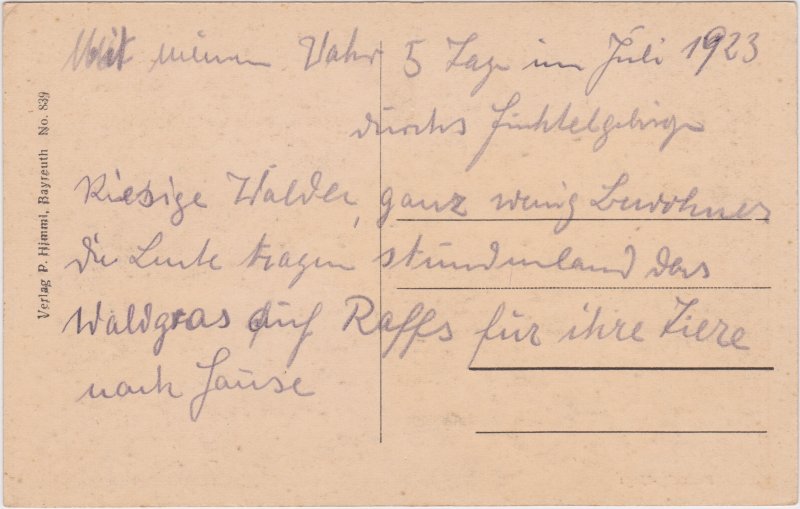 Mit meinem Vater 5 Tage im Juli 1923
durchs Fichtelgebirge
Riesige Wälder, ganz wenig Bewohner
die Leute tragen stundenland das
Waldgras auf Raffs für ihre Tiere
nach Hause
Verlag P. Himml, Bayreuth No. 839